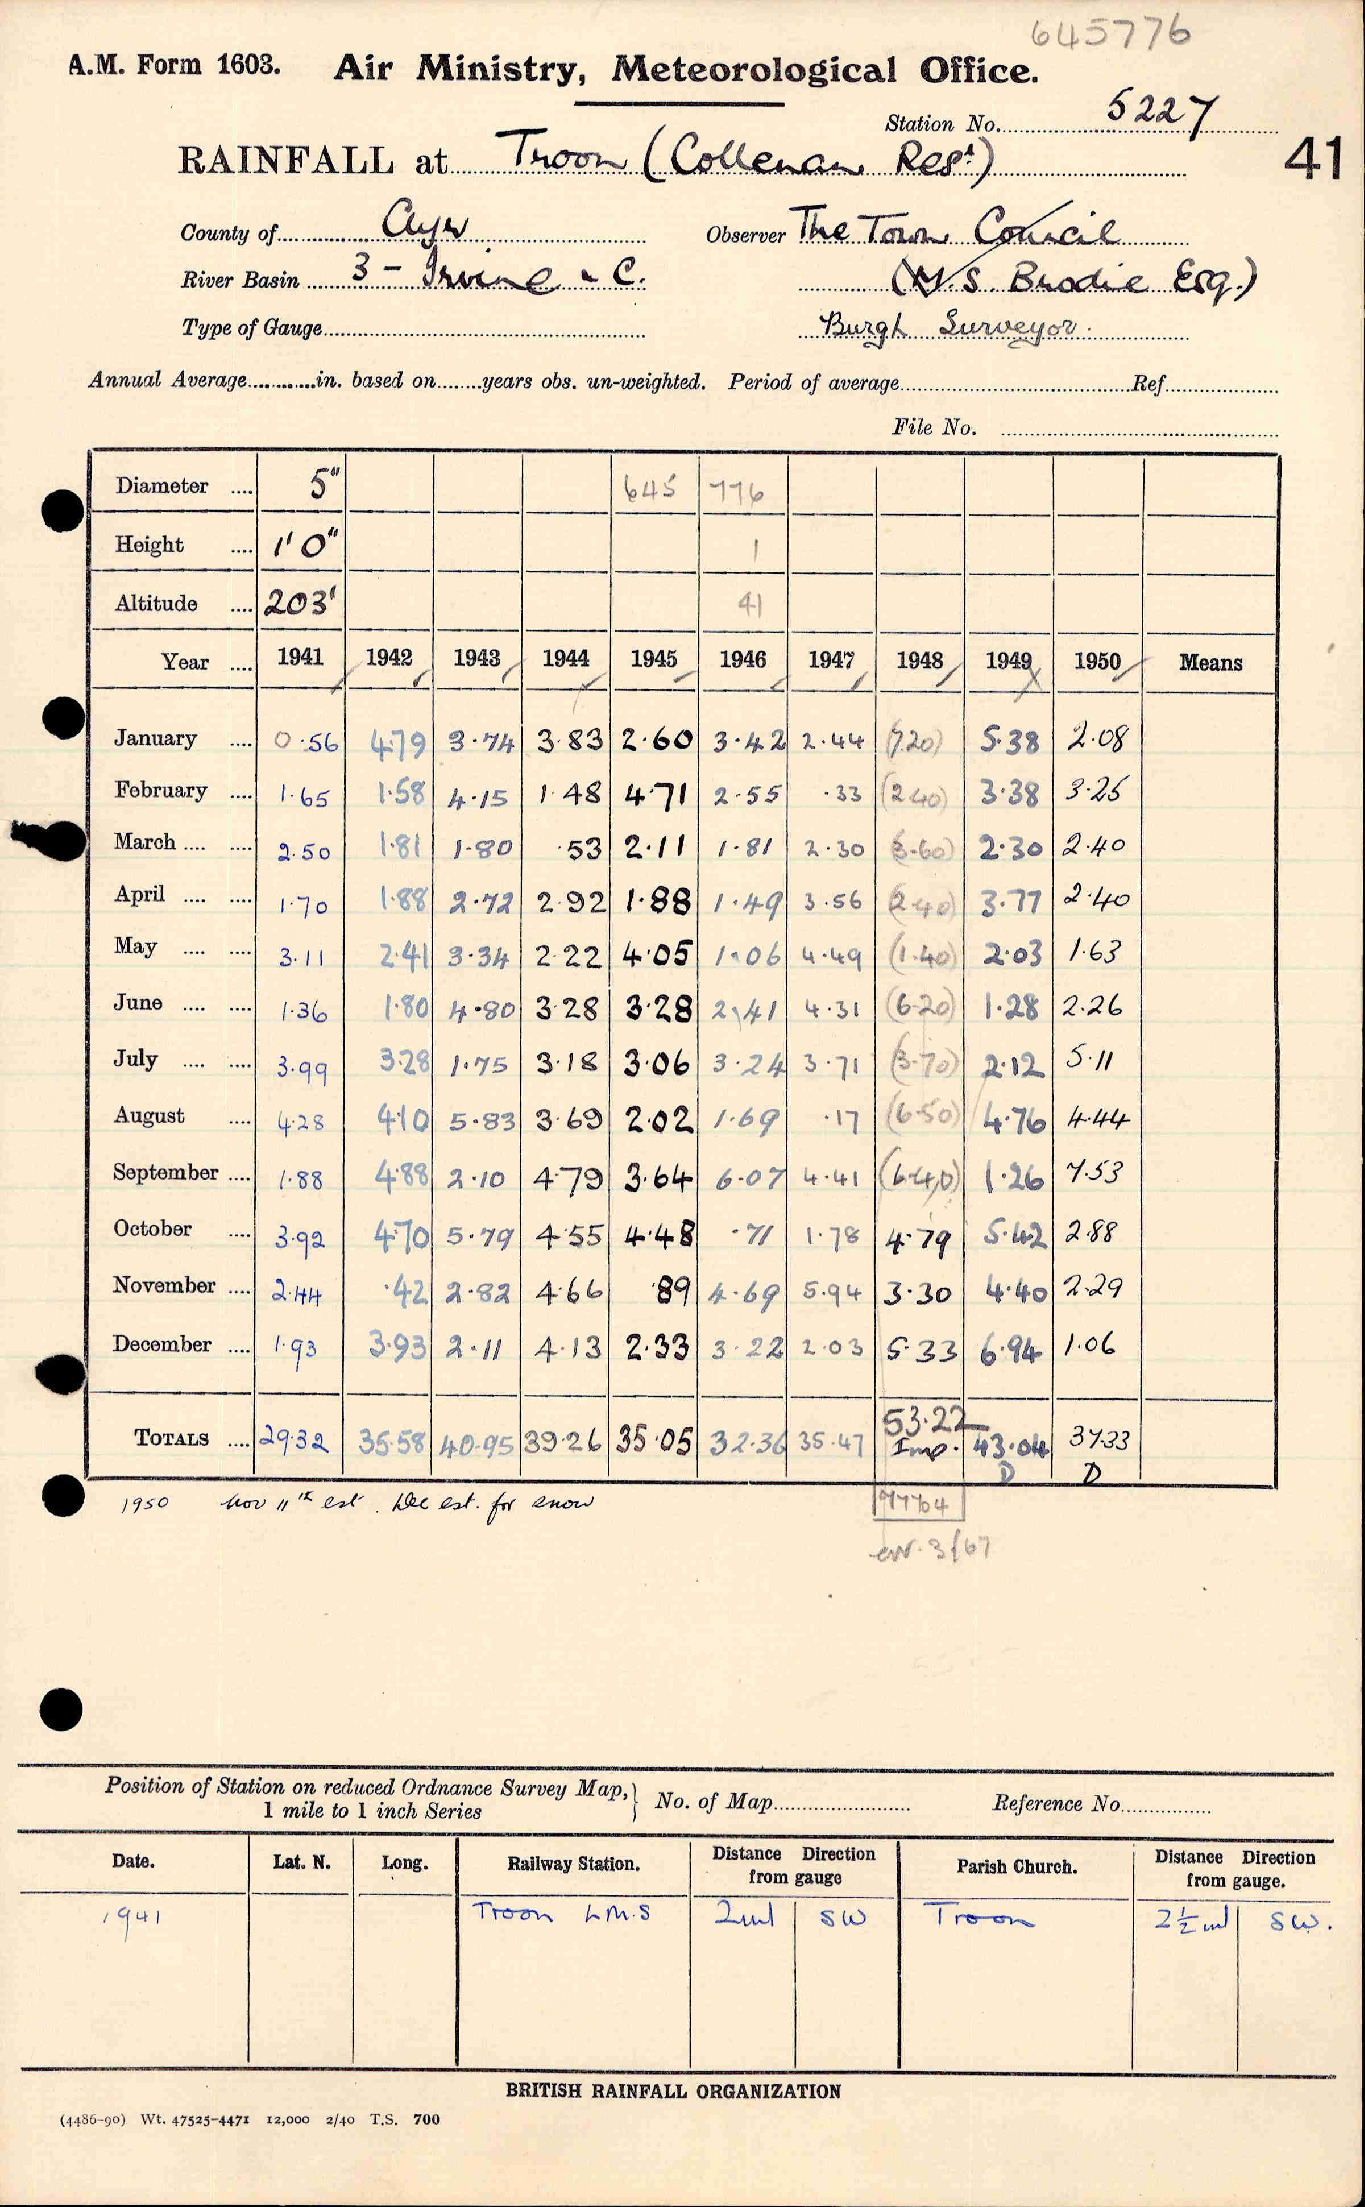 645776
A.M. Form 1603. Air Ministry, Meteorological Office.
Station No. 5227
RAINFALL at Troon (Collenan Resr.)
41
County of Ayr Observer The Town Council
River Basin 3 - Irvine &C. (W.S. Brodie Esq.)
Type of Gauge Burgh Surveyor.
Annual Average in. based on years obs. un-weighted. Period of average Ref
File No.
Diameter 5" 645 776
Height 1' 0" 1
Altitude 203' 41
Year 1941 1942 1943 1944 1945 1946 1947 1948 1949 1950 Means
January 0.56 4.79 3.74 3.83 2.60 3.42 2.44 (7.20) 5.38 2.08
February 1.65 1.58 4.15 1.48 4.71 2.55 .33 (2.40) 3.38 3.25
March 2.50 1.81 1.80 .53 2.11 1.81 2.30 (3.60) 2.30 2.40
April 1.70 1.88 2.72 2.92 1.88 1.49 3.56 (2.40) 3.77 2.40
May 3.11 2.41 3.34 2.22 4.05 1.06 4.49 (1.40) 2.03 1.63
June 1.36 1.80 4.80 3.28 3.28 2.41 4.31 (6.20) 1.28 2.26
July 3.99 3.28 1.75 3.18 3.06 3.24 3.71 (3.70) 2.12 5.11
August 4.28 4.10 5.83 3.69 2.02 1.69 .17 (6.50) 4.76 4.44
September 1.88 4.88 2.10 4.79 3.64 6.07 4.41 (6.40) 1.26 7.53
October 3.92 4.70 5.79 4.55 4.48 .71 1.78 4.79 5.42 2.88
November 2.44 .42 2.82 4.66 .89 4.69 5.94 3.30 4.40 2.29
December 1.93 3.93 2.11 4.13 2.33 3.22 2.03 5.33 6.94 1.06
TOTALS 29.32 35.58 40.95 39.26 35.05 32.36 35.47 53.22 Imp. 43.04 D 37.33 D
1950 Nov 11th est. Dec est. for snow
3/67
Position of Station on reduced Ordnance Survey Map, 1 mile to 1 inch Series } No. of Map Reference No.
Date. Lat. N. Long. Railway Station. Distance Direction from gauge Parish Church. Distance Direction from gauge.
1941 Troon L.M.S 2ml SW Troon 2½ml SW.
BRITISH RAINFALL ORGANIZATION
(4486-90) Wt. 47525-4471 12,000 2/40 T.S. 700